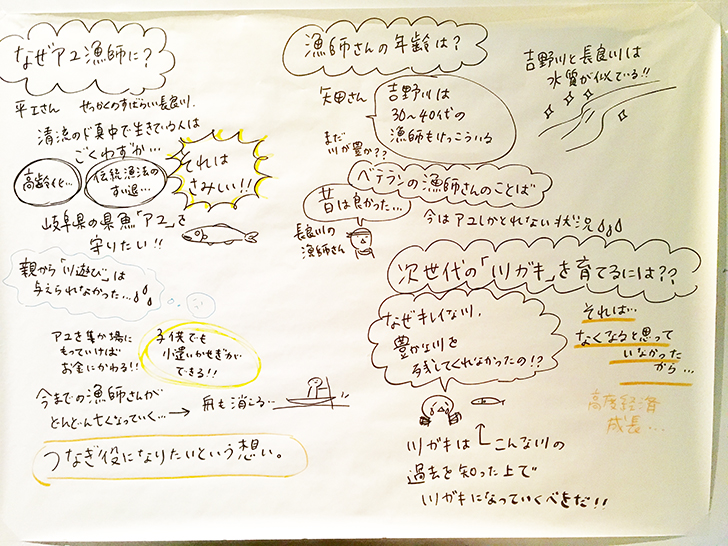 なぜアユ漁師に?
平工さん せっかくのすばらしい長良川、
清流のド真中で生きている人は
ごくわずか…
高齢化…
伝統漁法の
すい退…
それは
さみしい!!
岐阜県の県魚「アユ」を
守りたい!!
親から「川遊び」は
与えられなかった…
アユを集か場に
もっていけば
お金にかわる!!
子供でも
小遣いかせぎが
できる!!
今までの漁師さんが
どんどん亡くなっていく…→舟も消える…
つなぎ役になりたいという想い。
漁師さんの年齢は?
矢田さん
吉野川は
30〜40代の
漁師もけっこういる
まだ
川が豊か??
ベテランの漁師さんのことば
昔は良かった…
長良川の
漁師さん
今はアユしかとれない状況
吉野川と長良川は
水質が似ている!!
次世代の「川ガキ」を育てるには??
なぜキレイな川、
豊かな川を
残してくれなかったの!?
それは…
なくなると思って
いなかった
から…
高度経済
成長…
川ガキは こんな川の
過去を知った上で
川ガキになっていくべきだ!!